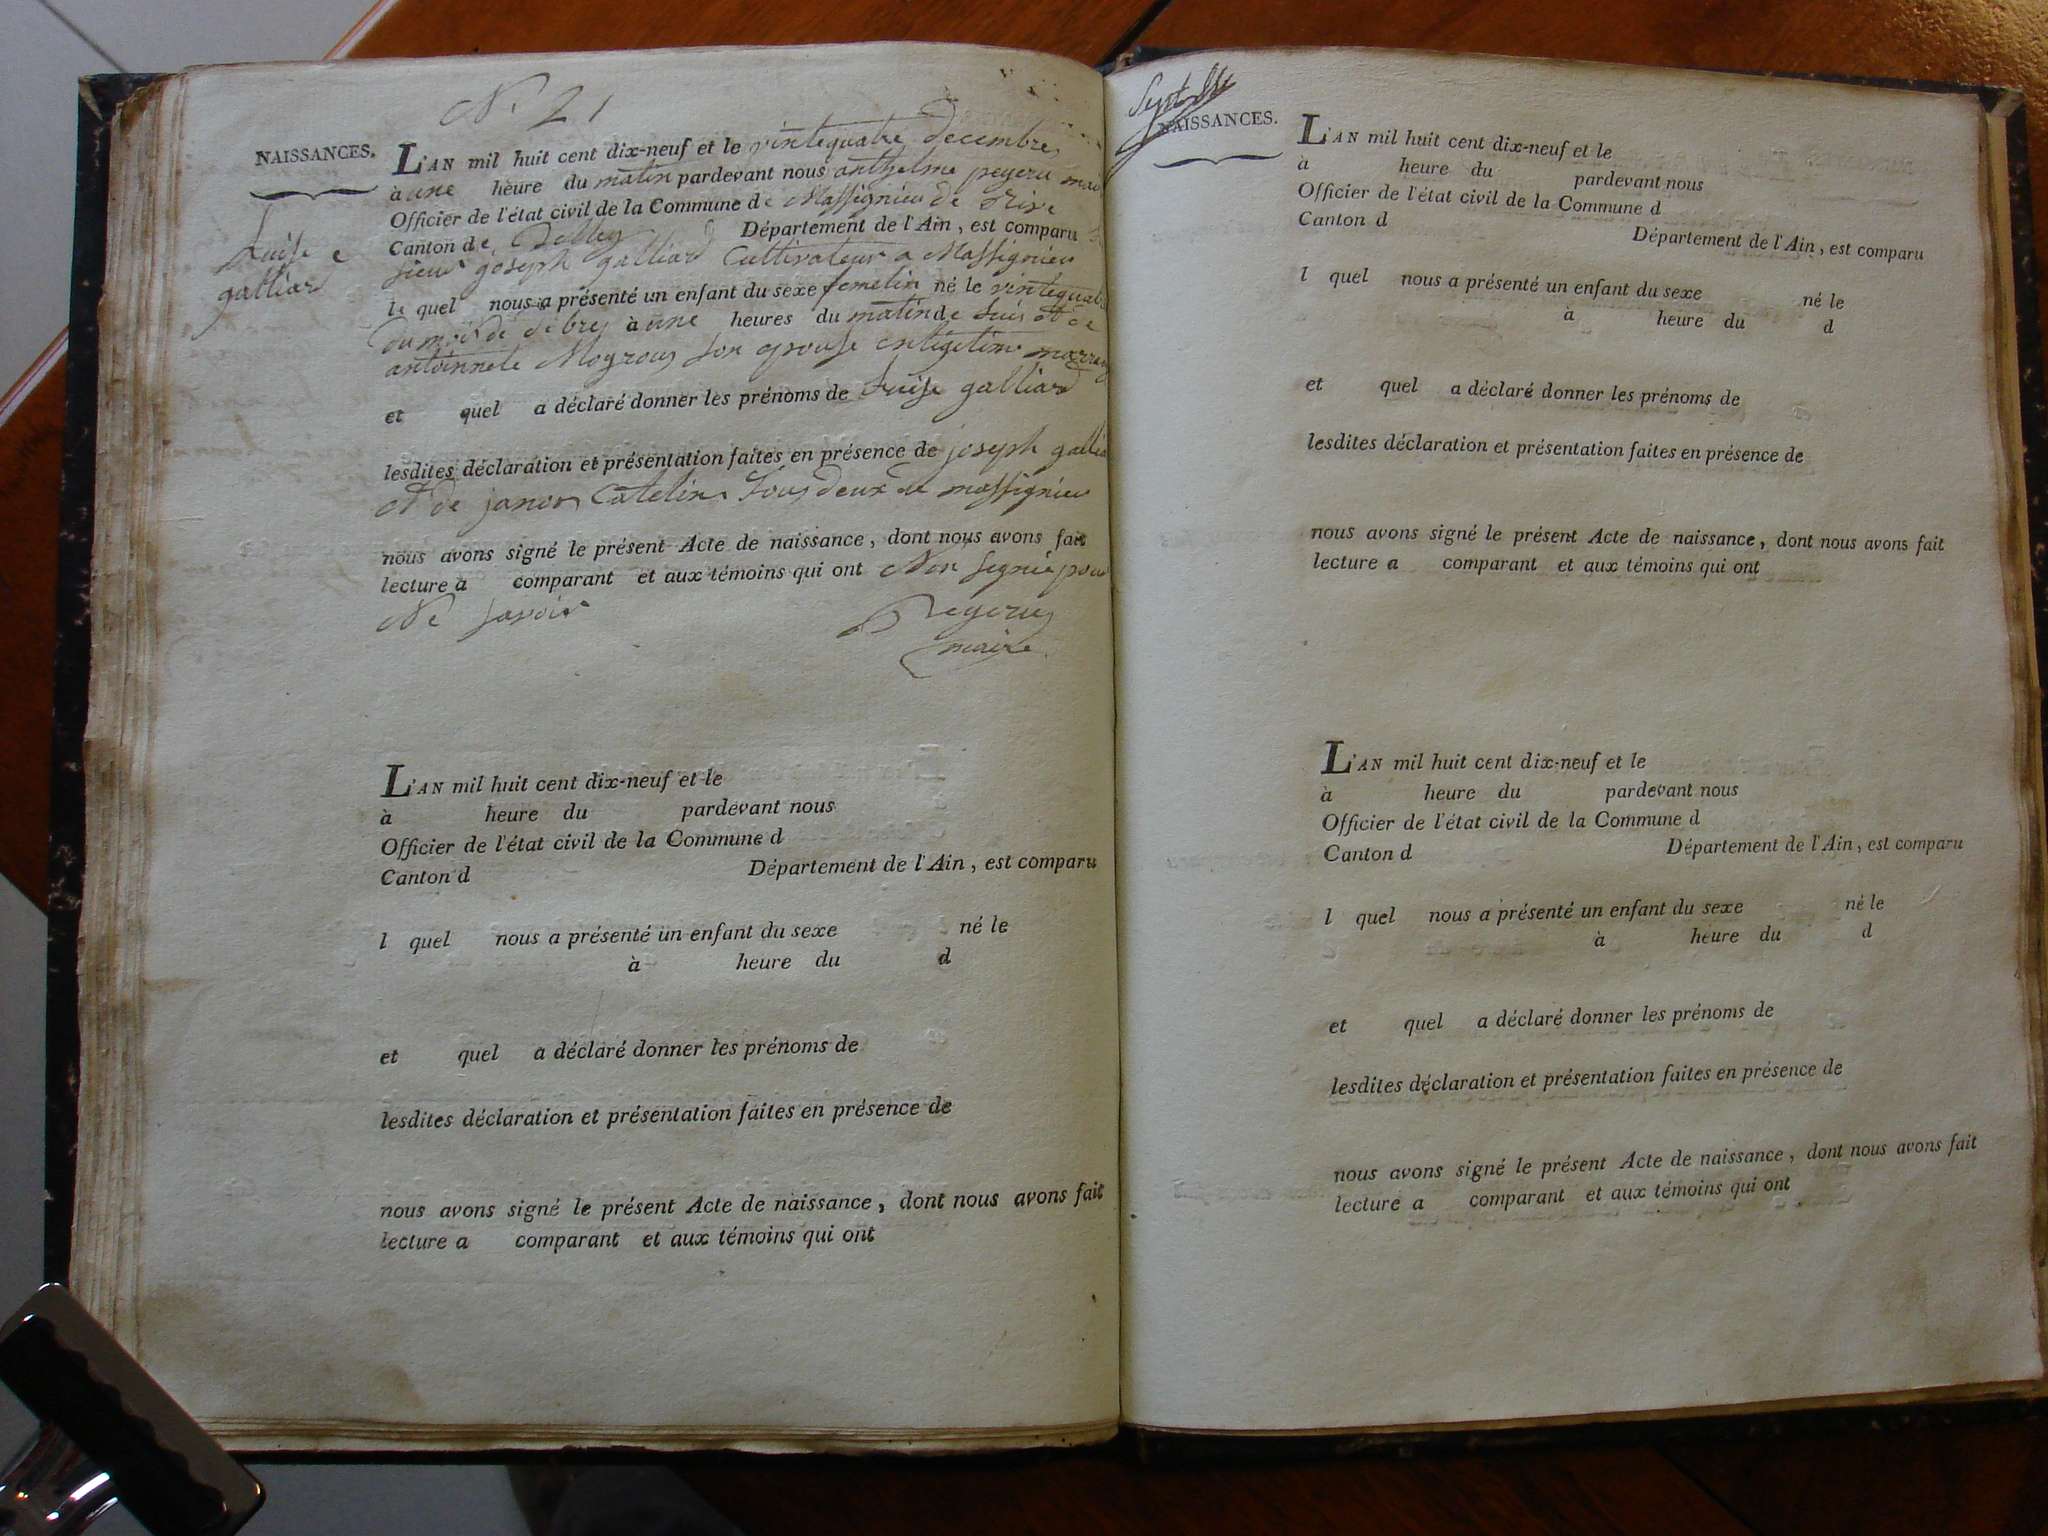 N. 21
NAISSANCES.
L'AN mil huit cent dix-neuf et le vintequatre decembre
à une heure du matin pardevant nous anthelme peyeru mai
Officier de l'état civil de la Commune de Massignieu de Rive
Canton de Belley Département de l'Ain, est comparu
sieur joseph galliard Cultivateur a Massignieu
le quel nous a présenté un enfant du sexe femelin né le vintequatre
du mois de à une heures du matin de luis et de
antoinnete son epouse entigitime
et quel a déclaré donner les prénoms de Luise galliard
lesdites déclaration et présentation faites en présence de joseph gallia
et de Catelin tous deux de massignieu
nous avons signé le présent Acte de naissance, dont nous avons fait
lecture a comparant et aux témoins qui ont Non signié pour
Ne savoir Peyeru
maire
Luise
galliard
L'AN mil huit cent dix-neuf et le
à heure du pardevant nous
Officier de l'état civil de la Commune d
Canton d Département de l'Ain, est comparu
l quel nous a présenté un enfant du sexe né le
à heure du d
et quel a déclaré donner les prénoms de
lesdites déclaration et présentation faites en présence de
nous avons signé le présent Acte de naissance, dont nous avons fait
lecture a comparant et aux témoins qui ont
NAISSANCES.
L'AN mil huit cent dix-neuf et le
à heure du pardevant nous
Officier de l'état civil de la Commune d
Canton d Département de l'Ain, est comparu
l quel nous a présenté un enfant du sexe né le
à heure du d
et quel a déclaré donner les prénoms de
lesdites déclaration et présentation faites en présence de
nous avons signé le présent Acte de naissance, dont nous avons fait
lecture a comparant et aux témoins qui ont
L'AN mil huit cent dix-neuf et le
à heure du pardevant nous
Officier de l'état civil de la Commune d
Canton d Département de l'Ain, est comparu
l quel nous a présenté un enfant du sexe né le
à heure du d
et quel a déclaré donner les prénoms de
lesdites déclaration et présentation faites en présence de
nous avons signé le présent Acte de naissance, dont nous avons fait
lecture a comparant et aux témoins qui ont